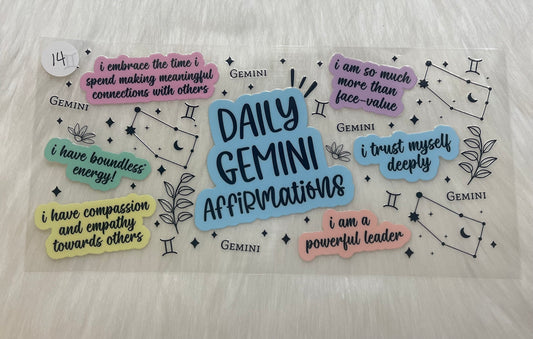 14
i embrace the time i
spend making meaningful
connections with others
Gemini
i am so much
more than
face-value
Gemini
DAILY
GEMINI
AFFIRMATIONS
Gemini
i have boundless
energy!
i trust myself
deeply
i have compassion
and empathy
towards others
Gemini
Gemini
i am a
powerful leader